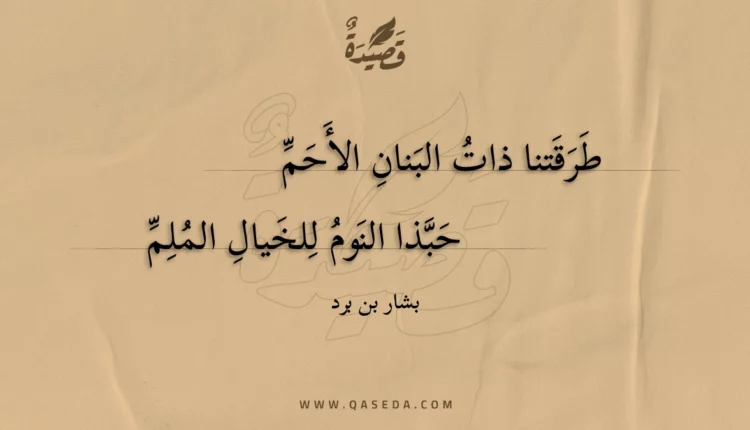 قَصِيْدَةٌ
طَرَقَتنا ذاتُ البَنانِ الأَحَمِّ
حَبَّذا النَومُ لِلخَيالِ المُلِمِّ
بشار بن برد
WWW.QASEDA.COM